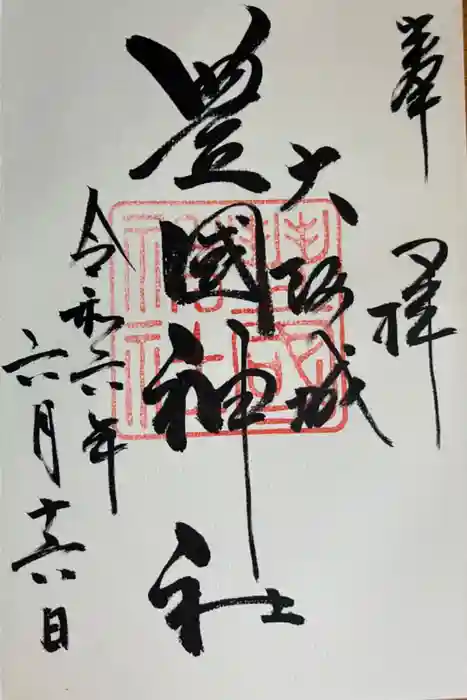 奉拝
大阪城
豊國神社
令和六年
六月十六日
豐國
神社